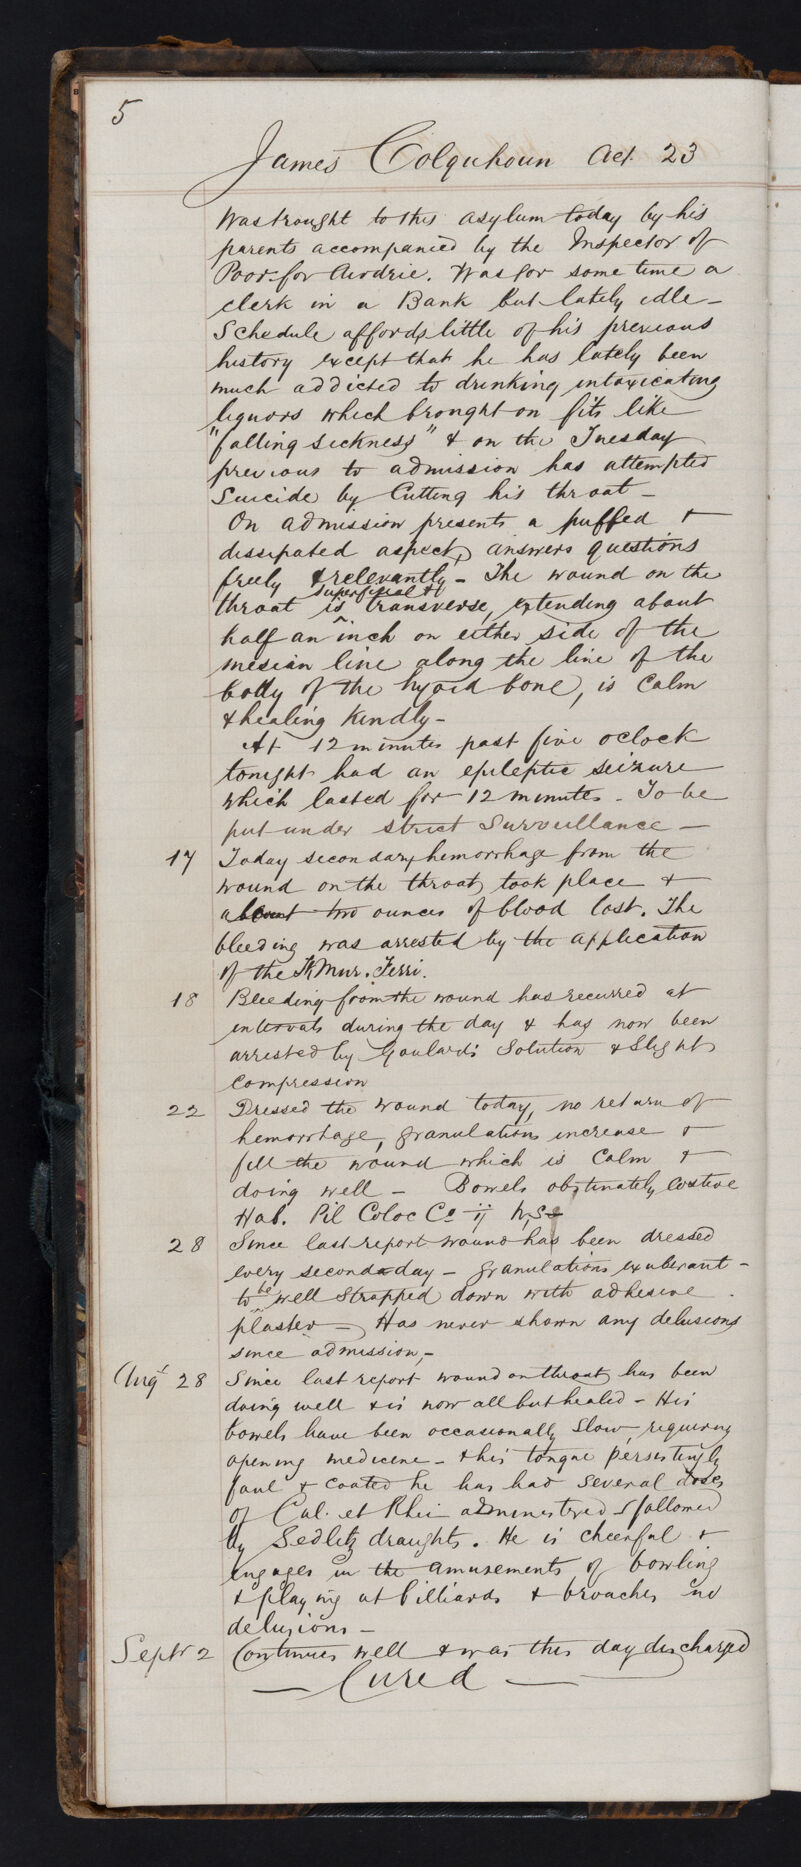 5
James Colquhoun Aet. 23
Was brought to this asylum today by his
parents accompanied by the Inspector of
Poor for Airdrie. Was for some time a
clerk in a Bank but lately idle –
Schedule affords little of his previous
history except that he has lately been
much addicted to drinking intoxicating
liquors which brought on fits like
"falling sickness" & on the Tuesday
previous to admission has attempted
Suicide by Cutting his throat –
On admission presents a puffed &
dissipated aspect, answers questions
freely & relevantly – The wound on the
throat is superficial & transverse, extending about
half an inch on either side of the
mesian line along the line of the
body of the hyoid bone, is calm
& healing kindly –
At 12 minutes past five oclock
tonight had an epileptic seizure
which lasted for 12 minutes. To be
put under strict Surveillance –
17 Today secondary hemorrhage from the
wound on the throat took place &
about two ounces of blood lost. The
bleeding was arrested by the application
of the Tr. Mur. Ferri.
18 Bleeding from the wound has recurred at
intervals during the day & has now been
arrested by Goulards Solution & Slight
compression
22 Dressed the wound today, no return of
hemorrhage, granulations increase &
fill the wound which is calm &
doing well – Bowels obstinately costive
Hab. Pil Coloc Co ij h.s.
28 Since last report wound has been dressed
every second day – granulations exuberant –
to be well strapped down with adhesive
plaster – Has never shown any delusions
since admission, –
Augt 28 Since last report wound on throat has been
doing well & is now all but healed – His
bowels have been occasionally slow, requiring
opening medicine – & his tongue persistingly
foul & coated he has had several doses
of Cal. et Rhei administered & followed
by Sedlitz draughts. He is cheerful &
engages in the amusements of bowling
& playing at billiards & broaches no
delusions –
Septr 2 Continues well & was this day discharged
– Cured –